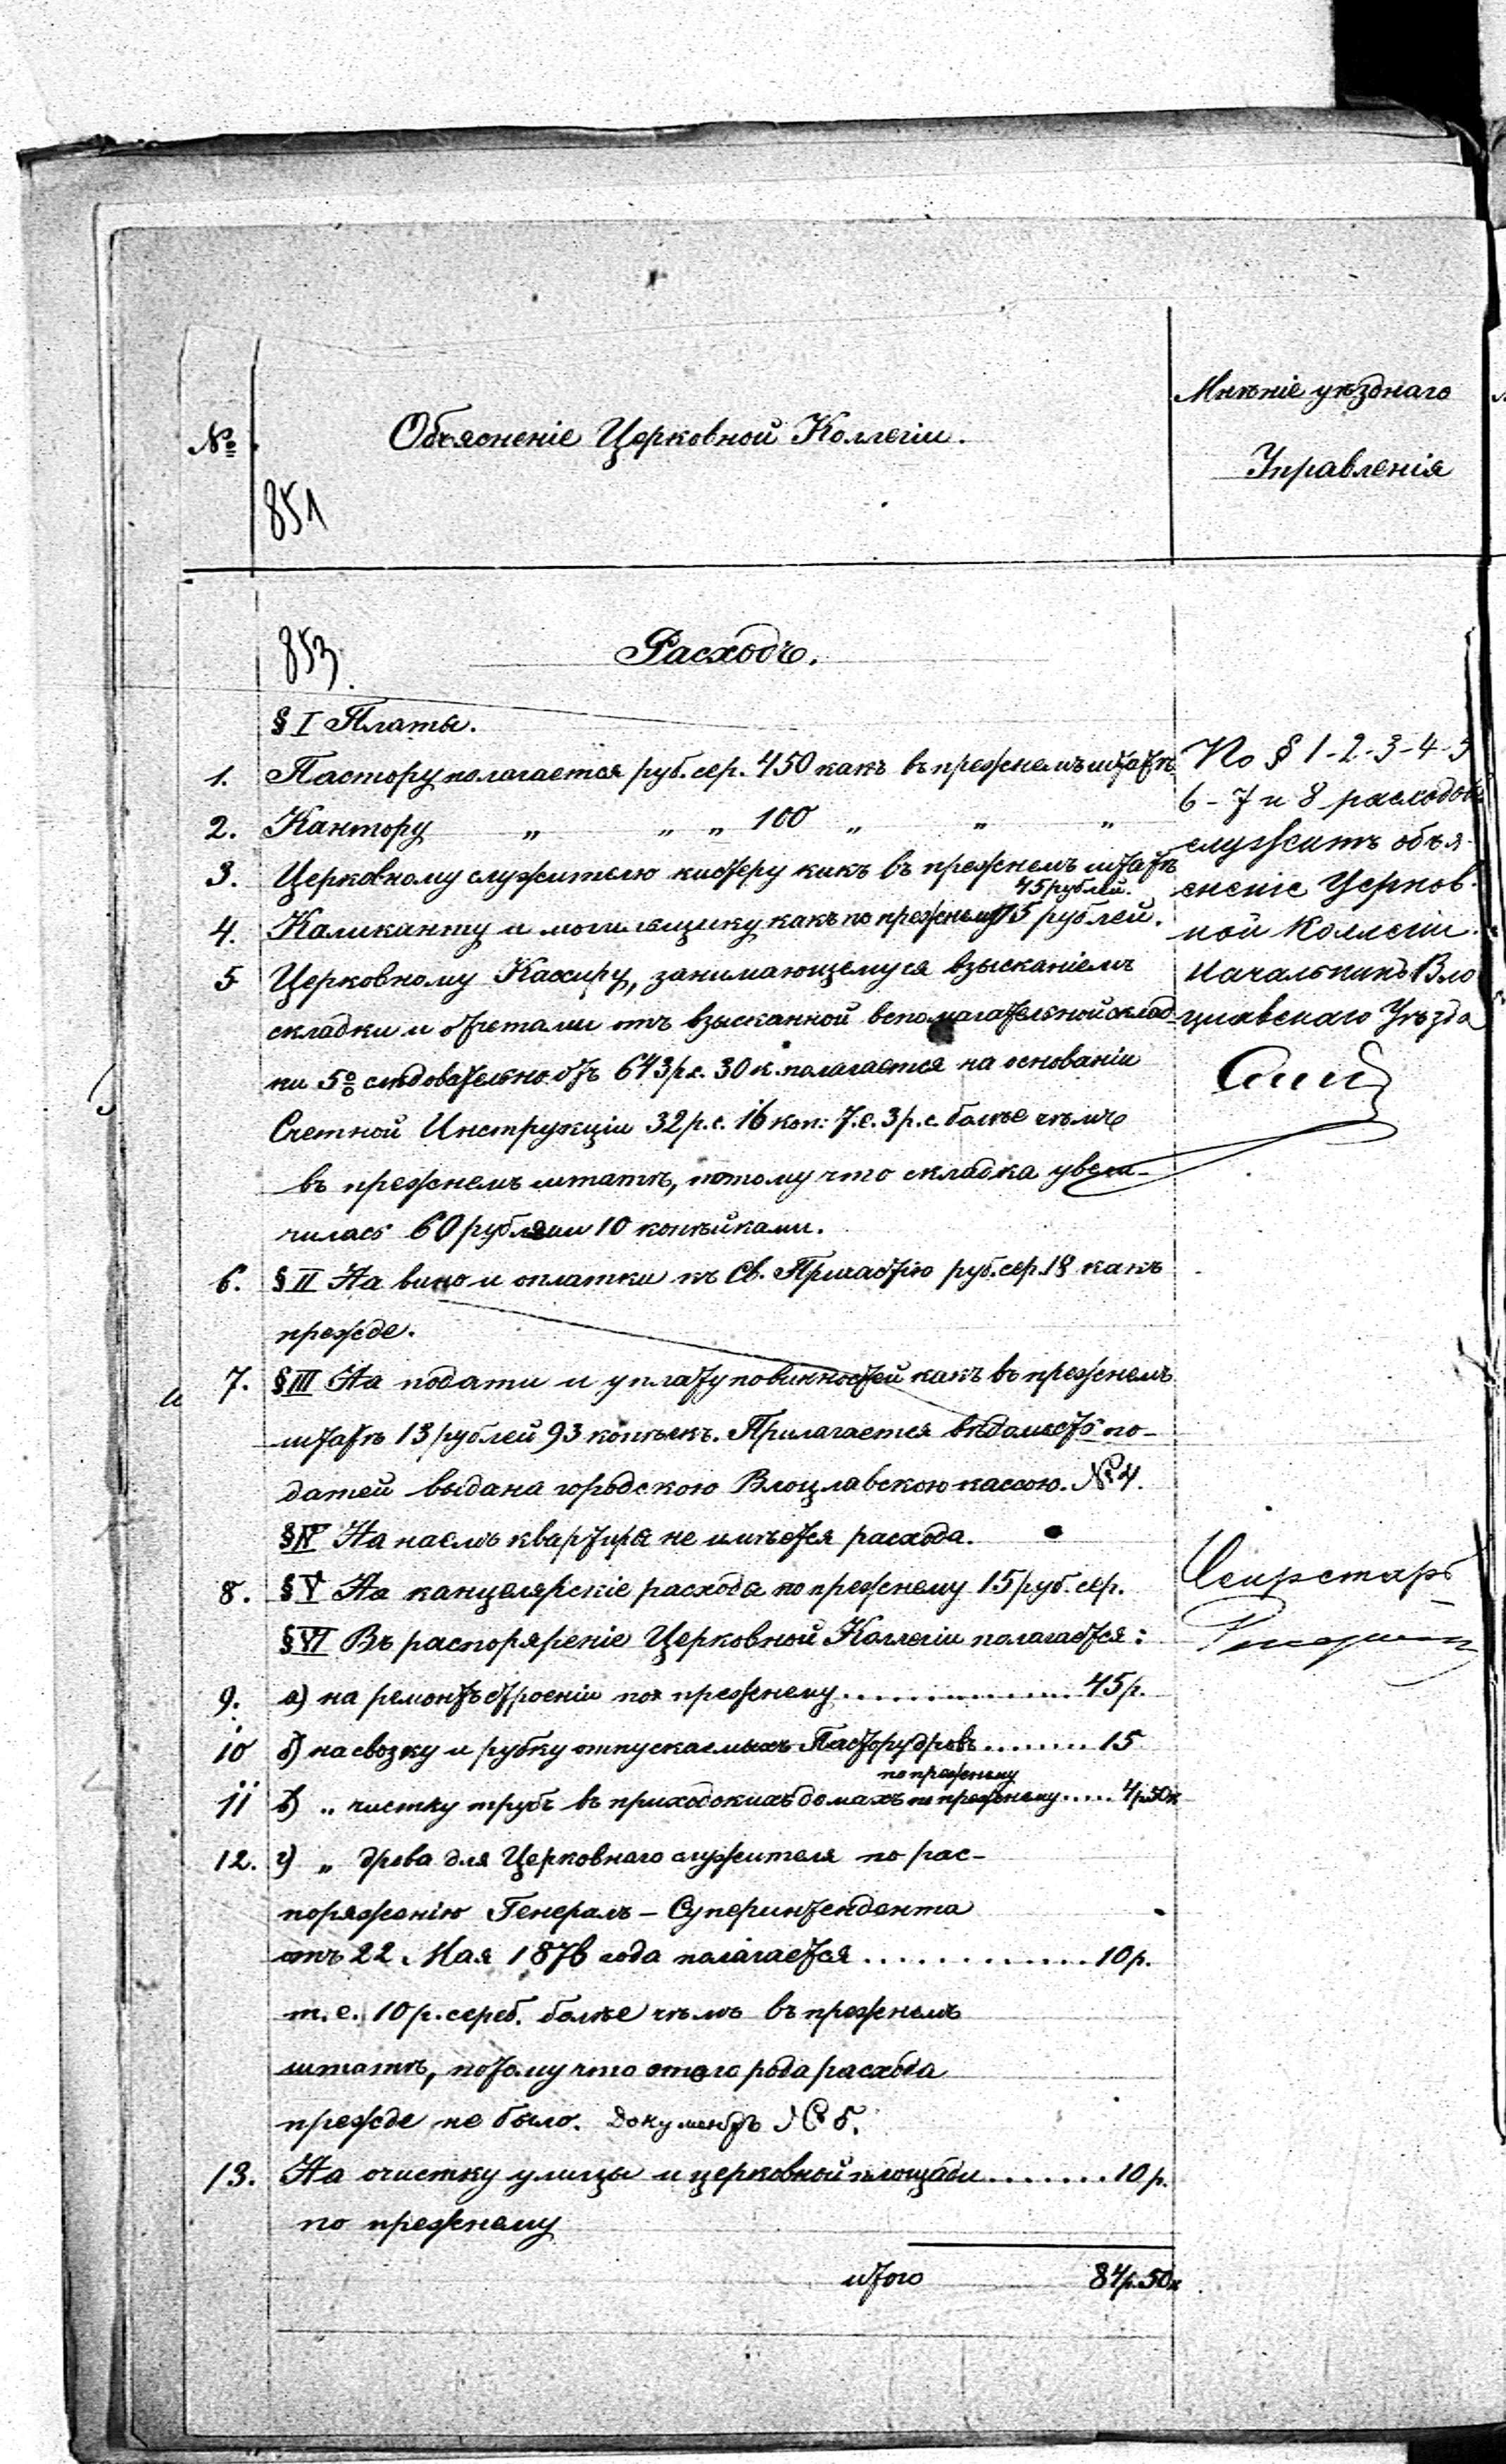 №
Объясненіе Церковной Коллегіи.
Мнѣніе уѣзднаго
Управленія
851
853.
Расходъ.
§ I Платы.
1. Пастору полагается руб. сер. 450 какъ въ прежнемъ штатѣ
2. Кантору „ „ „ 100 „ „ „
3. Церковному служителю кистеру какъ въ прежнемъ штатѣ
45 рублей.
4. Каликанту и могильщику какъ по прежнему 15 рублей.
5 Церковному Кассиру, занимающемуся взысканіемъ
складки и отчетами отъ взысканной вспомагательной склад-
ки 5% следовательно отъ 643 р.с. 30 к. полагается на основаніи
Счетной Инструкціи 32 р.с. 16 коп: т.е. 3 р.с. болѣе чѣмъ
въ прежнемъ штатѣ, потому что складка увели-
чилась 60 рублями 10 копѣйками.
6. § II На вино и оплатки къ Св. Причастію руб. сер. 18 какъ
прежде.
и 7. § III На подати и уплату повинностей какъ въ прежнемъ
штатѣ 13 рублей 93 копѣекъ. Прилагается вѣдомость по-
датей выдана городскою Влоцлавскою кассою. № 4.
§ IV На наемъ квартиры не имѣется расхода.
8. § V На канцелярскіе расхода по прежнему 15 руб. сер.
§ VI Въ распоряреніе Церковной Коллегіи полагается:
9. а) на ремонтъ строеніи по прежнему ............... 45 р.
10 б) на свозку и рубку отпускаемыхъ Пастору дровъ ........ 15
по прежнему
11 в) „ чистку трубъ въ приходскихъ домахъ по прежнему ..... 4 р 50 к
12. г) „ дрова для Церковнаго служителя по рас-
поряженію Генералъ-Суперинтендента
отъ 22 Мая 1876 года полагается ............. 10 р.
т.е. 10 р. сереб. болѣе чѣмъ въ прежнемъ
штатѣ, потому что этого рода расхода
прежде не было. Документъ № 5.
13. На очистку улицы и церковной площади ....... 10 р.
по прежнему
итого 84 р. 50 к
По § 1-2-3-4-5
6-7 и 8 расходовъ
служитъ объя-
сненіе Церков-
ной Коллегіи.
Начальникъ Вло
цлавскаго Уѣзда
Секретарь